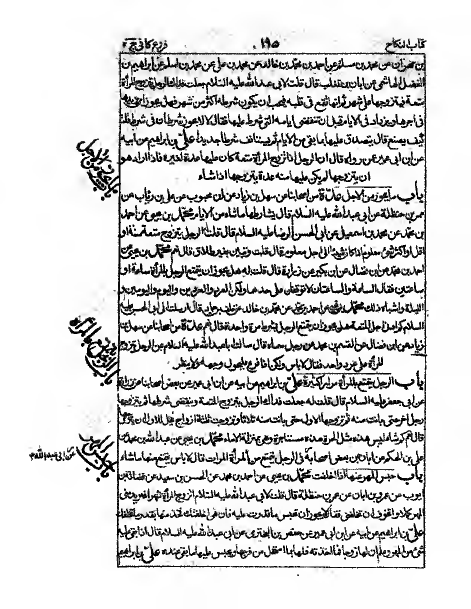 كتاب النكاح ١٩٥ فروع كافى ج ٢
الفضل الهاشمى عن ابان بن تغلب قال قلت لابى عبد الله عليه السلام جعلت فداك الرجل يتزوج المرأة
متعة فيتزوجها على شهر ثم انها تقع فى قلبه فيحب ان يكون شرطه اكثر من شهر فهل يجوز ان يزيدها
فى اجرها ويزداد فى الايام قبل ان تنقضى ايامه التى شرط عليها فقال لا يجوز شرطان فى شرط قلت
كيف يصنع قال يتصدق عليها بما بقى من الايام ثم يستانف شرطا جديدا على بن ابراهيم عن ابيه
عن ابن ابى عمير عمن رواه قال ان الرجل اذا تزوج المرأة متعة كان عليها عدة لغيره فاذا اراد هو
ان يتزوجها لم يكن عليها منه عدة يتزوجها اذا شاء
باب ما يجوز من الاجل عدة من اصحابنا عن سهل بن زياد عن ابن محبوب عن على بن رئاب عن
عمر بن حنظلة عن ابى عبد الله عليه السلام قال يشارطها ما شاء من الايام محمد بن يحيى عن احمد
بن محمد عن محمد بن اسمعيل عن ابى الحسن الرضا عليه السلام قال قلت له الرجل يتزوج متعة سنة او
اقل او اكثر قال اذا كان شىء معلوم الى اجل معلوم قال قلت وتبين بغير طلاق قال نعم محمد بن يحيى عن
احمد بن محمد عن ابن فضال عن ابن بكير عن زرارة قال قلت له هل يجوز ان يتمتع الرجل بالمرأة ساعة او
ساعتين فقال الساعة والساعتان لا يوقف على حدهما ولكن العرد والعردين واليوم واليومين و
الليلة واشباه ذلك محمد بن يحيى عن احمد بن محمد عن محمد بن خالد عن خلف بن حماد قال ارسلت الى ابى الحسن عليه
السلام كم ادنى اجل المتعة هل يجوز ان يتمتع الرجل بشرط مرة واحدة قال نعم عدة من اصحابنا عن سهل بن
زياد عن ابن فضال عن القسم بن محمد عن رجل سماه قال سالت ابا عبد الله عليه السلام عن الرجل يتزوج
المرأة على عرد واحد فقال لا باس ولكن اذا فرغ فليحول وجهه ولا ينظر
باب الرجل يتمتع بالمرأة مرارا كثيرة على بن ابراهيم عن ابيه عن ابن ابى عمير عن بعض اصحابنا عن زرارة
عن ابى جعفر عليه السلام قال قلت له جعلت فداك الرجل يتزوج المتعة وينقضى شرطها ثم يتزوجها
رجل اخر حتى بانت منه ثم يتزوجها الاول حتى بانت منه ثلاثا وتزوجت ثلاثة ازواج يحل للاول ان يتزوجها
قال نعم كم شاء ليس هذه مثل الحرة هذه مستاجرة وهى بمنزلة الاماء محمد بن يحيى عن عبد الله بن محمد عن
على بن الحكم عن ابان عن بعض اصحابه فى الرجل يتمتع من المرأة المرات قال لا باس يتمتع منها ما شاء
باب حبس المهر عنها اذا اخلفت محمد بن يحيى عن احمد بن محمد عن الحسين بن سعيد عن فضالة بن
ايوب عن عمر بن ابان عن عمر بن حنظلة قال قلت لابى عبد الله عليه السلام اتزوج المرأة شهرا
على بن ابراهيم عن ابيه عن ابن ابى عمير عن حفص بن البخترى عن ابى عبد الله عليه السلام قال اذا بقى عليه
شىء من المهر وعلم ان لها زوجا فما اخذته فلها بما استحل من فرجها ويحبس عليها ما بقى عنده على بن ابراهيم